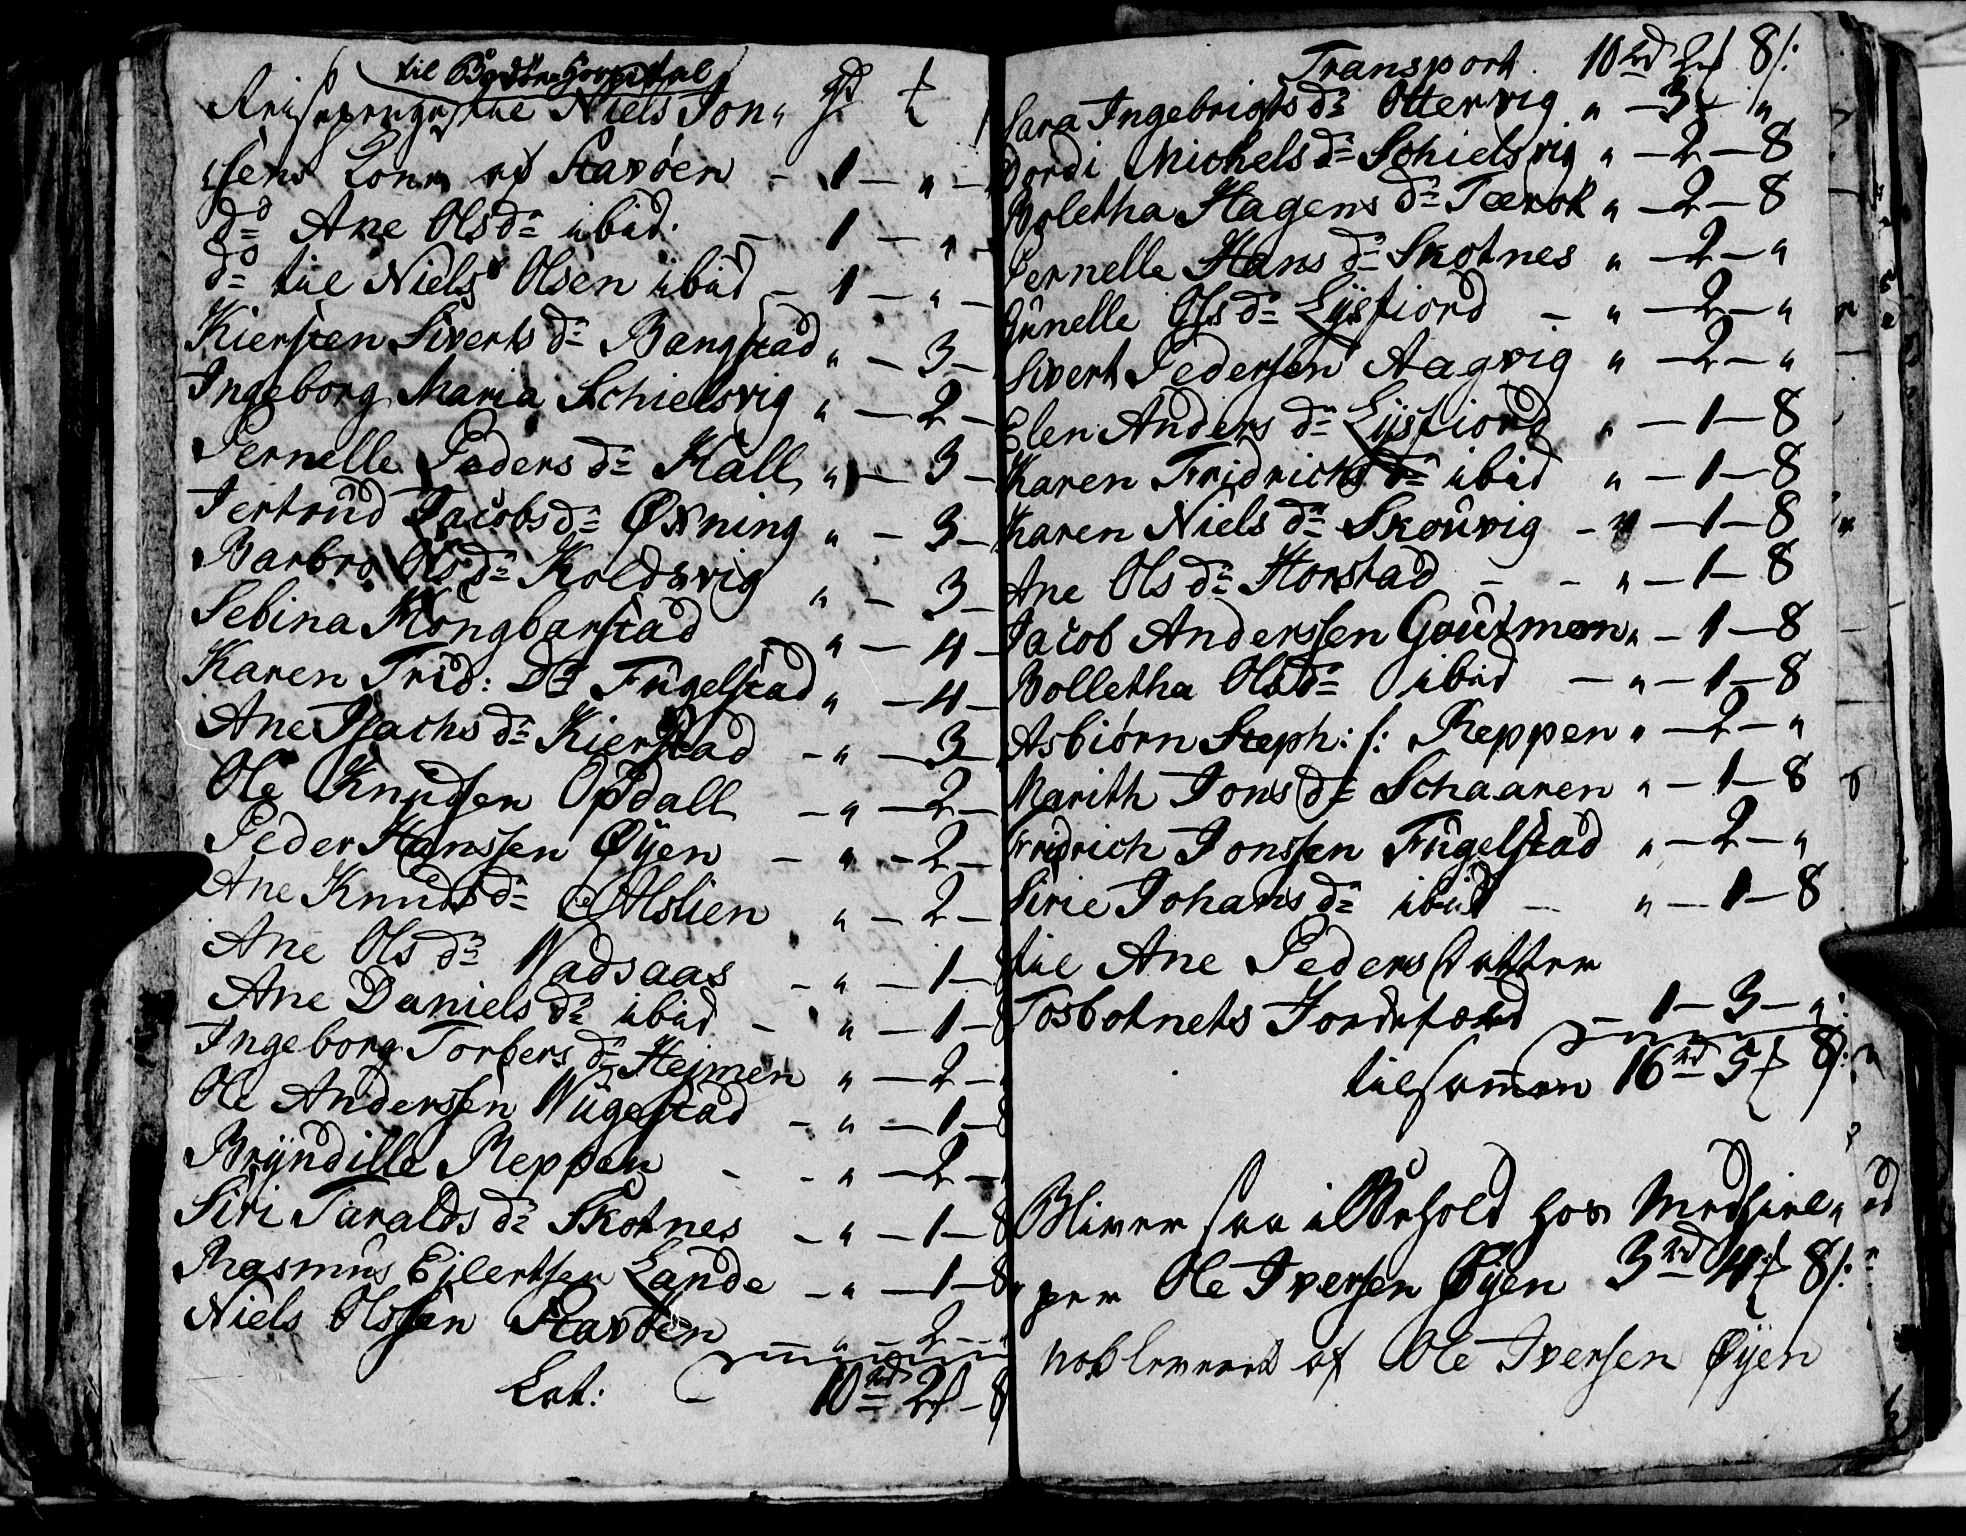 til Bodöe Hospital
Reisepenge til Niels Jon„ rd ƶ
sens Kone af Stavöen - 1 - „ -
do Ane Olsdr ibid. - 1 - „ -
do til Niels Olsen ibid - 1 - „ -
Kiersten Sivertsdr Bangstad „ - 3 -
Ingeborg Maria Schielsvig „ - 2 -
Pernelle Pedersdr Kall „ - 3 -
Jertrud Jacobsdr Øxning „ - 3 -
Barbro Olsdr Koldsvig „ - 3 -
Sebina Kongbarstad „ - 4 -
Karen Frid: Dr Fugelstad „ - 4 -
Ane Isachsdr Kierstad - „ - 3 -
Ole Knudsen Opdall - „ - 2 -
Peder Hanssen Øyen - „ - 2 -
Ane Knudsdr Alslien „ - 2 -
Ane Olsdr Nadsaas - „ - 1 - 8
Ane Danielsdr ibid - „ - 1 - 8
Ingeborg Torbersdr Heimen „ - 2 -
Ole Anderssen Wugestad - „ - 1 - 8
Bryndille Reppen - - „ - 2 -
Siri Taraldsdr Skotnes - „ - 1 - 8
Rasmus Eilertsen Lande - „ - 1 - 8
Niels Olssen Stavöen - „ - 2 -
Lat: 10 rd 2 ƶ - 8
Transport. 10 rd 2 ƶ 8 /:
Sara Ingebrigtsdr Ottervig „ - 3 - „
Dordi Michelsdr Schielsvig „ - 2 - 8
Boletha Hagensdr Tærok „ - 2 - 8
Pernelle Hansdr Skotnes „ - 2 - „
Gunelle Olsdr Lysfiord - „ - 2 - „
Sivert Pedersen Aagvig „ - 2 - „
Elen Andersdr Lysfiord „ - 1 - 8
Karen Fridrichsdr ibid „ - 1 - 8
Karen Nielsdr Skouvig - „ - 1 - 8
Ane Olsdr Horstad - - „ - 1 - 8
Jacob Anderssen Gautmoen „ - 1 - 8
Bolletha Olsdr ibid - „ - 1 - 8
Asbiörn Steph: s: Reppen „ - 2 - „
Marith Jonsdr Schaaren „ - 1 - 8
Fridrich Jonssen Fugelstad „ - 2 - „
Sirie Johansdr ibid - „ - 1 - 8
til Ane Pedersdatter
Tosbotnets Jordefærd - 1 - 3 - „:
tilsamen 16 rd 5 ƶ 8 /:
Bliver saa i Behold hos Medhiel„
per Ole Iversen Øyen 3 rd 4 ƶ 8 /:
af Ole Iversen Øyen